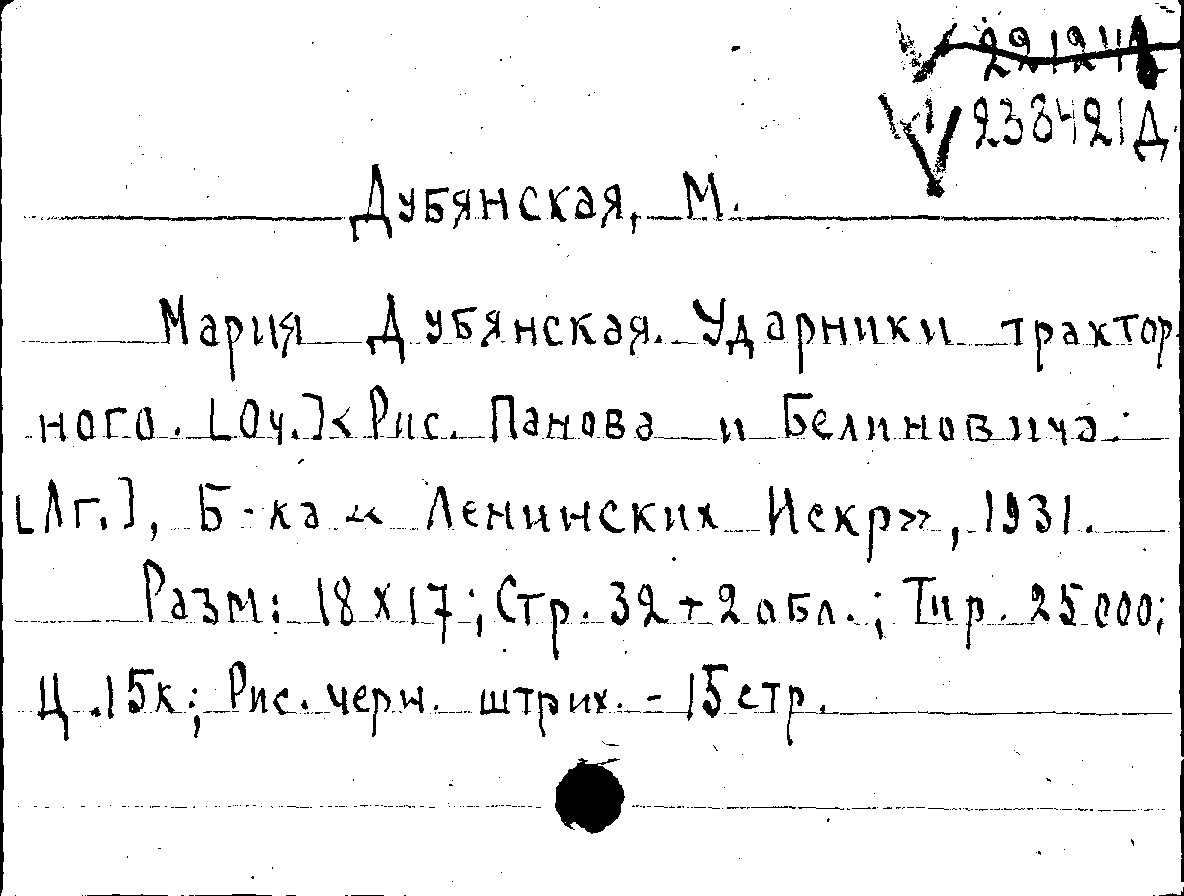 238421Д
Дубянская, М.
Мария Дубянская. Ударники трактор
ного. [Оч.] < Рис. Панова и Белиновича.
[Лг.], Б-ка « Ленинских Искр», 1931.
Разм: 18 х 17; Стр. 32 + 2 обл.; Тир. 25000;
Ц. 15к; Рис. черн. штрих. - 15 стр.